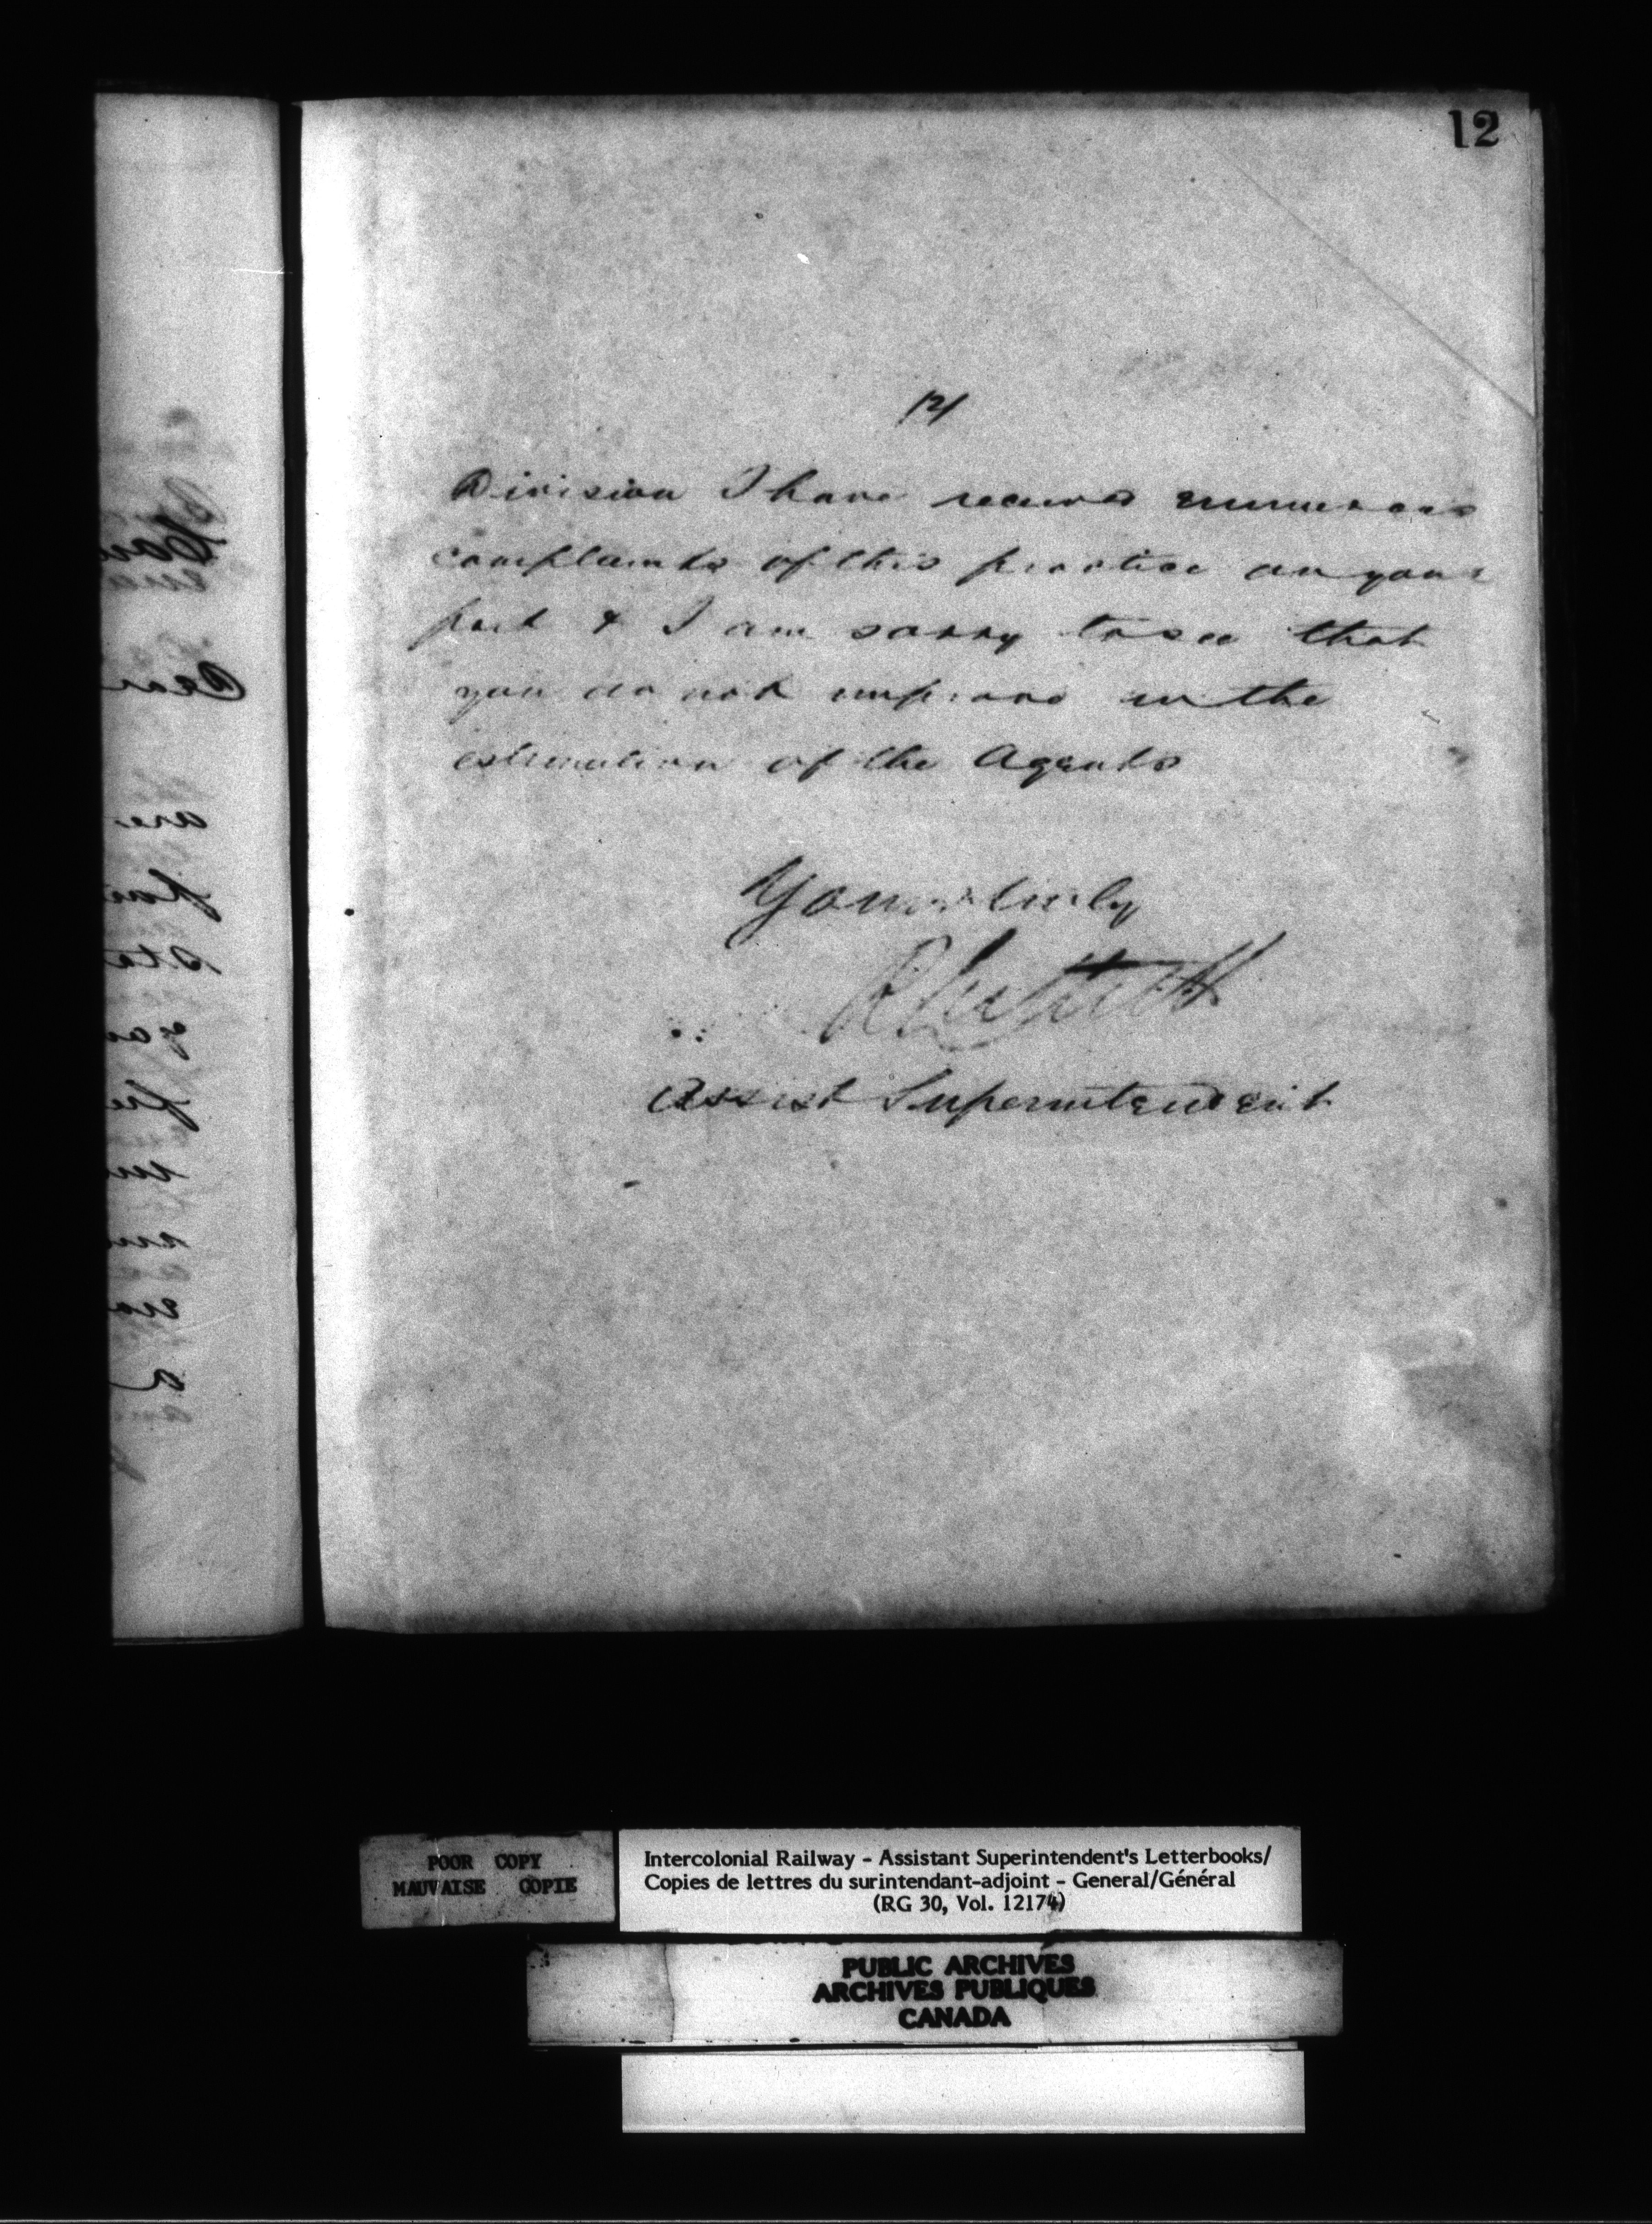 12
/2/
Division I have received numerous
complaints of this practice on your
part & I am sorry to see that
you do not improve in the
estimation of the Agents
Yours truly
Assist Superintendent
POOR COPY
MAUVAISE COPIE
Intercolonial Railway - Assistant Superintendent's Letterbooks/
Copies de lettres du surintendant-adjoint - General/Général
(RG 30, Vol. 12174)
PUBLIC ARCHIVES
ARCHIVES PUBLIQUES
CANADA